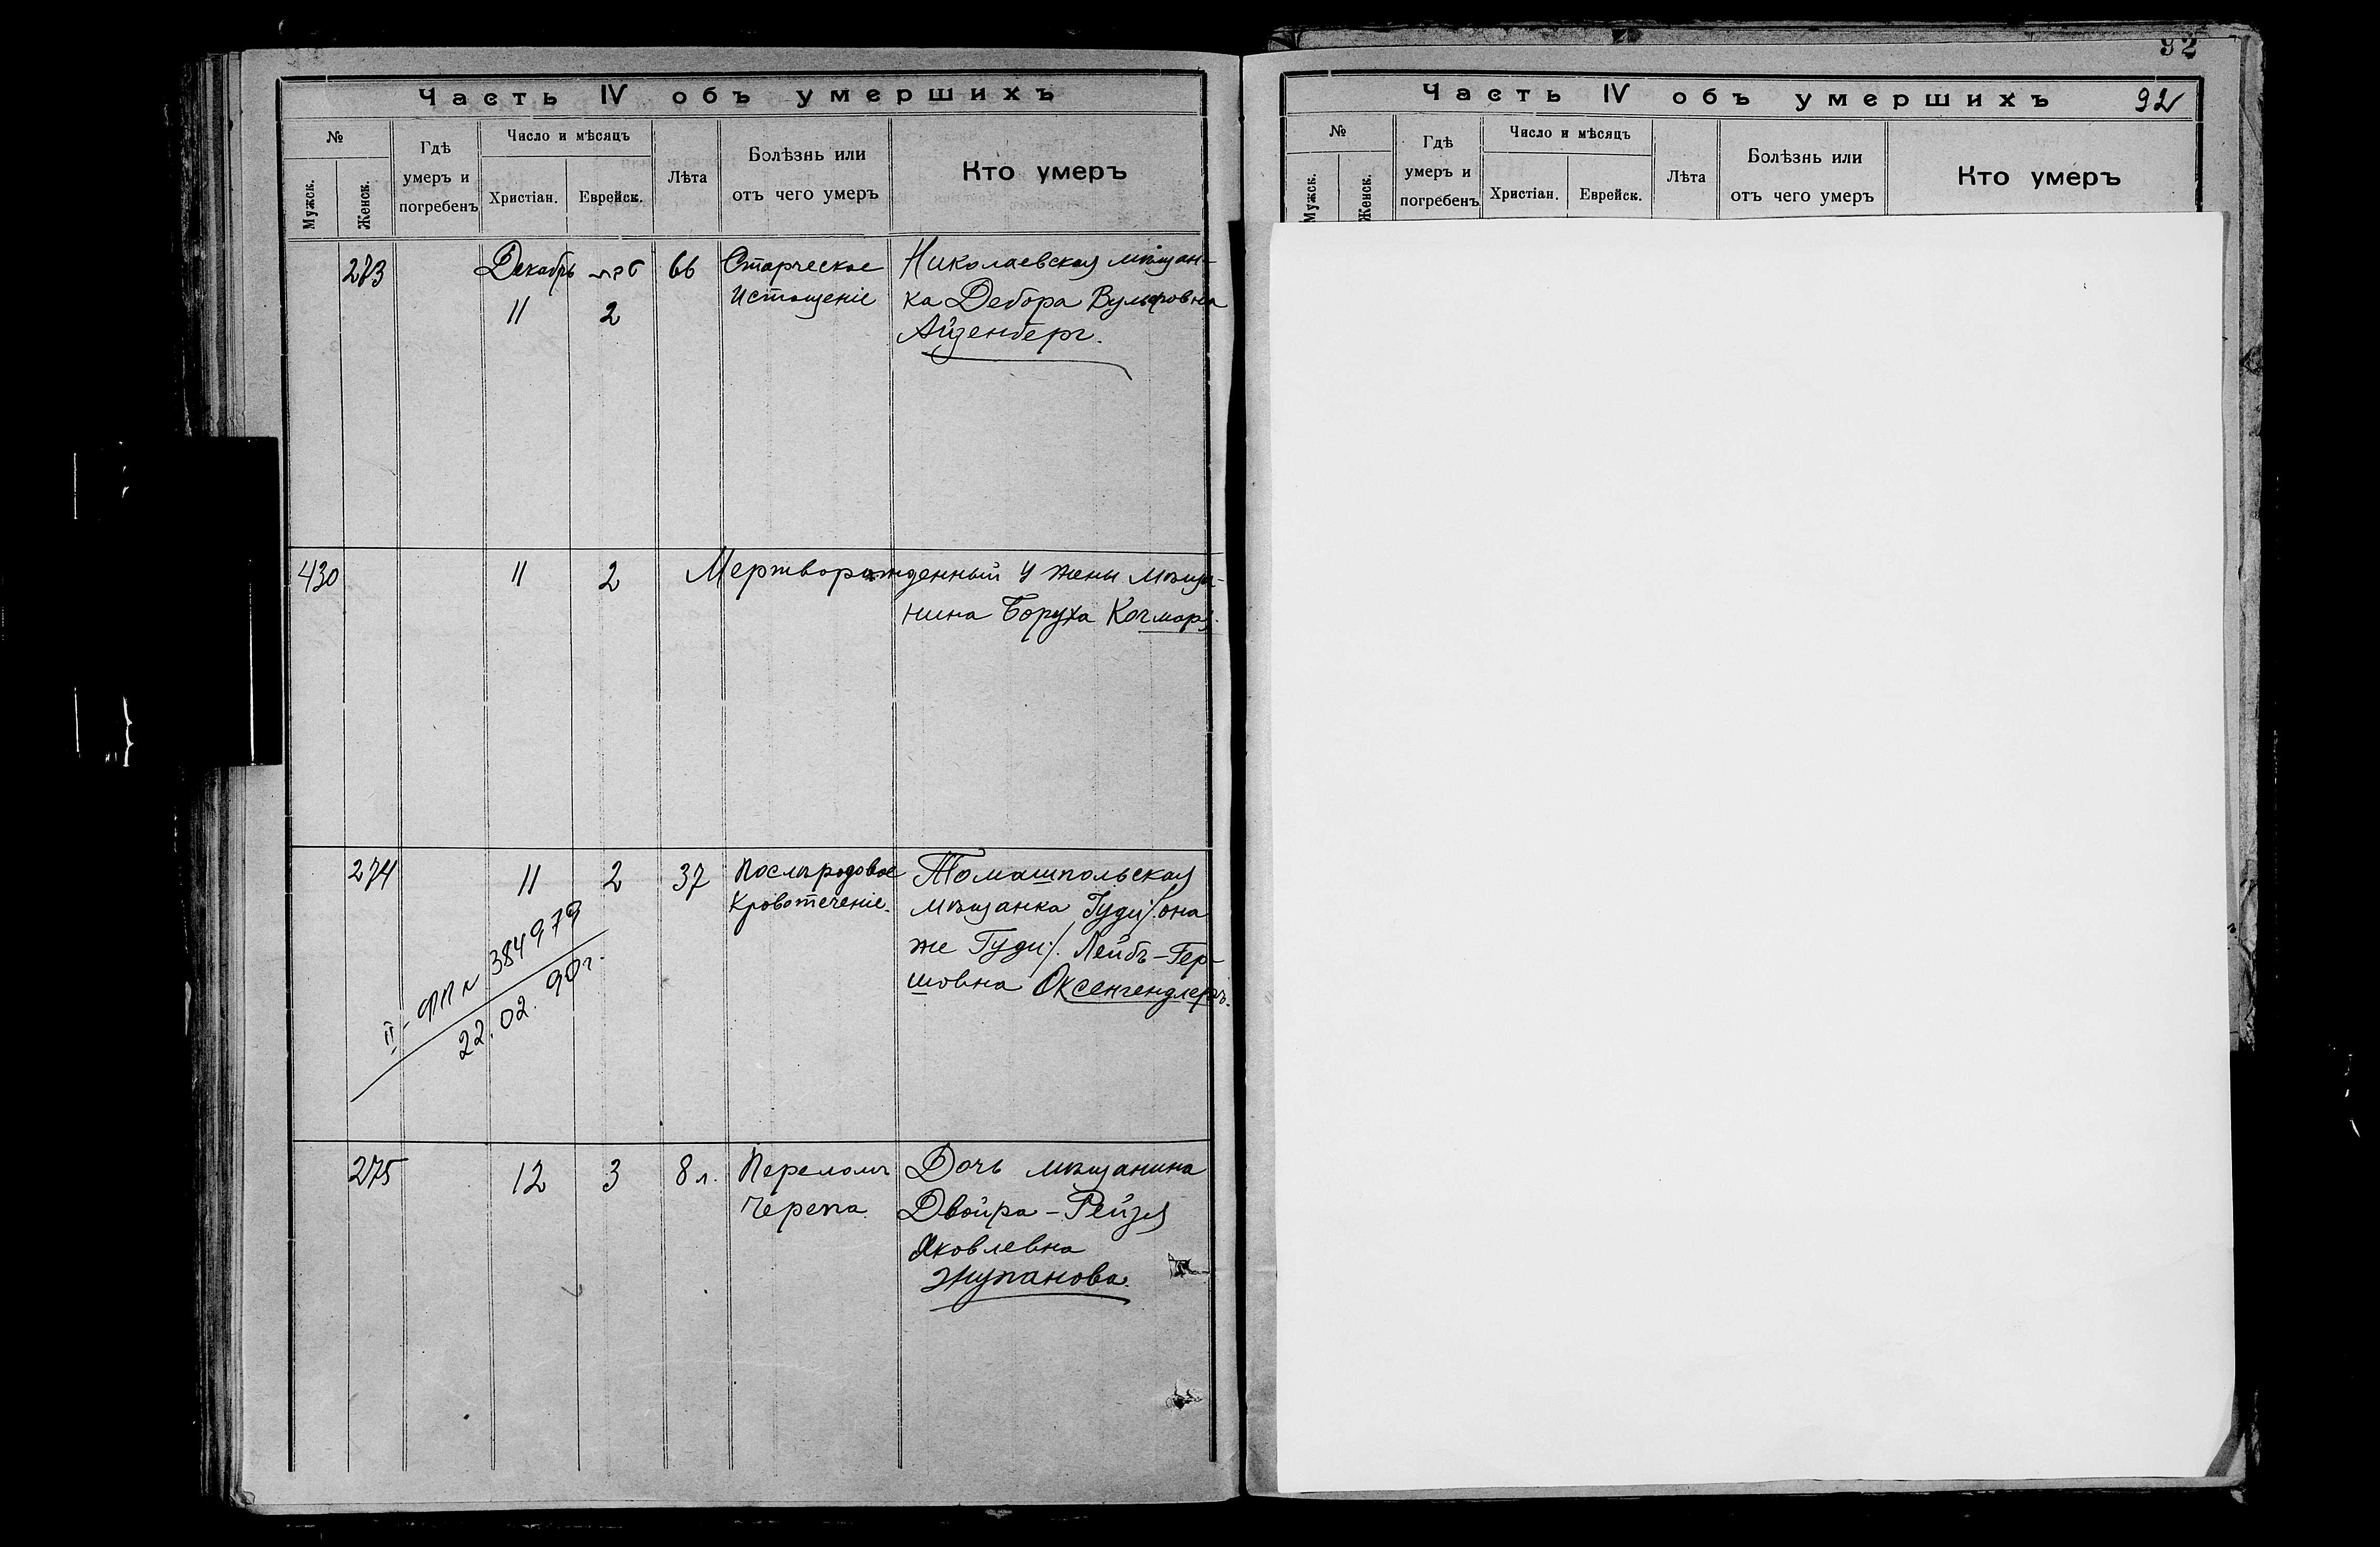 Часть IV объ умершихъ
№
Мужск.
Женск.
Гдѣ
умеръ и
погребенъ
Число и мѣсяцъ
Христіан.
Еврейск.
Лѣта
Болѣзнь или
отъ чего умеръ
Кто умеръ
273
Декабрь
11
טבת
2
66
Старческое
Истощеніе
Николаевская мѣщан-
ка Дебора Вульфовна
Айзенбергъ.
430
11
2
Мертворожденный у жены мѣща-
нина Боруха
274
11
2
37
Послѣродовое
Кровотеченіе.
Томашпольская
мѣщанка Гуди /: она
же Гуди :/. Лейбъ-Гер-
шовна Оксенгендлеръ.
II - ФП № 384979
22.02.90г.
275
12
3
8 л.
Переломъ
Черепа.
Дочь мѣщанина
Двойра-Рейзя
Яковлевна
Жупанова.
92
Часть IV объ умершихъ
92
№
Мужск.
Женск.
Гдѣ
умеръ и
погребенъ
Число и мѣсяцъ
Христіан.
Еврейск.
Лѣта
Болѣзнь или
отъ чего умеръ
Кто умеръ